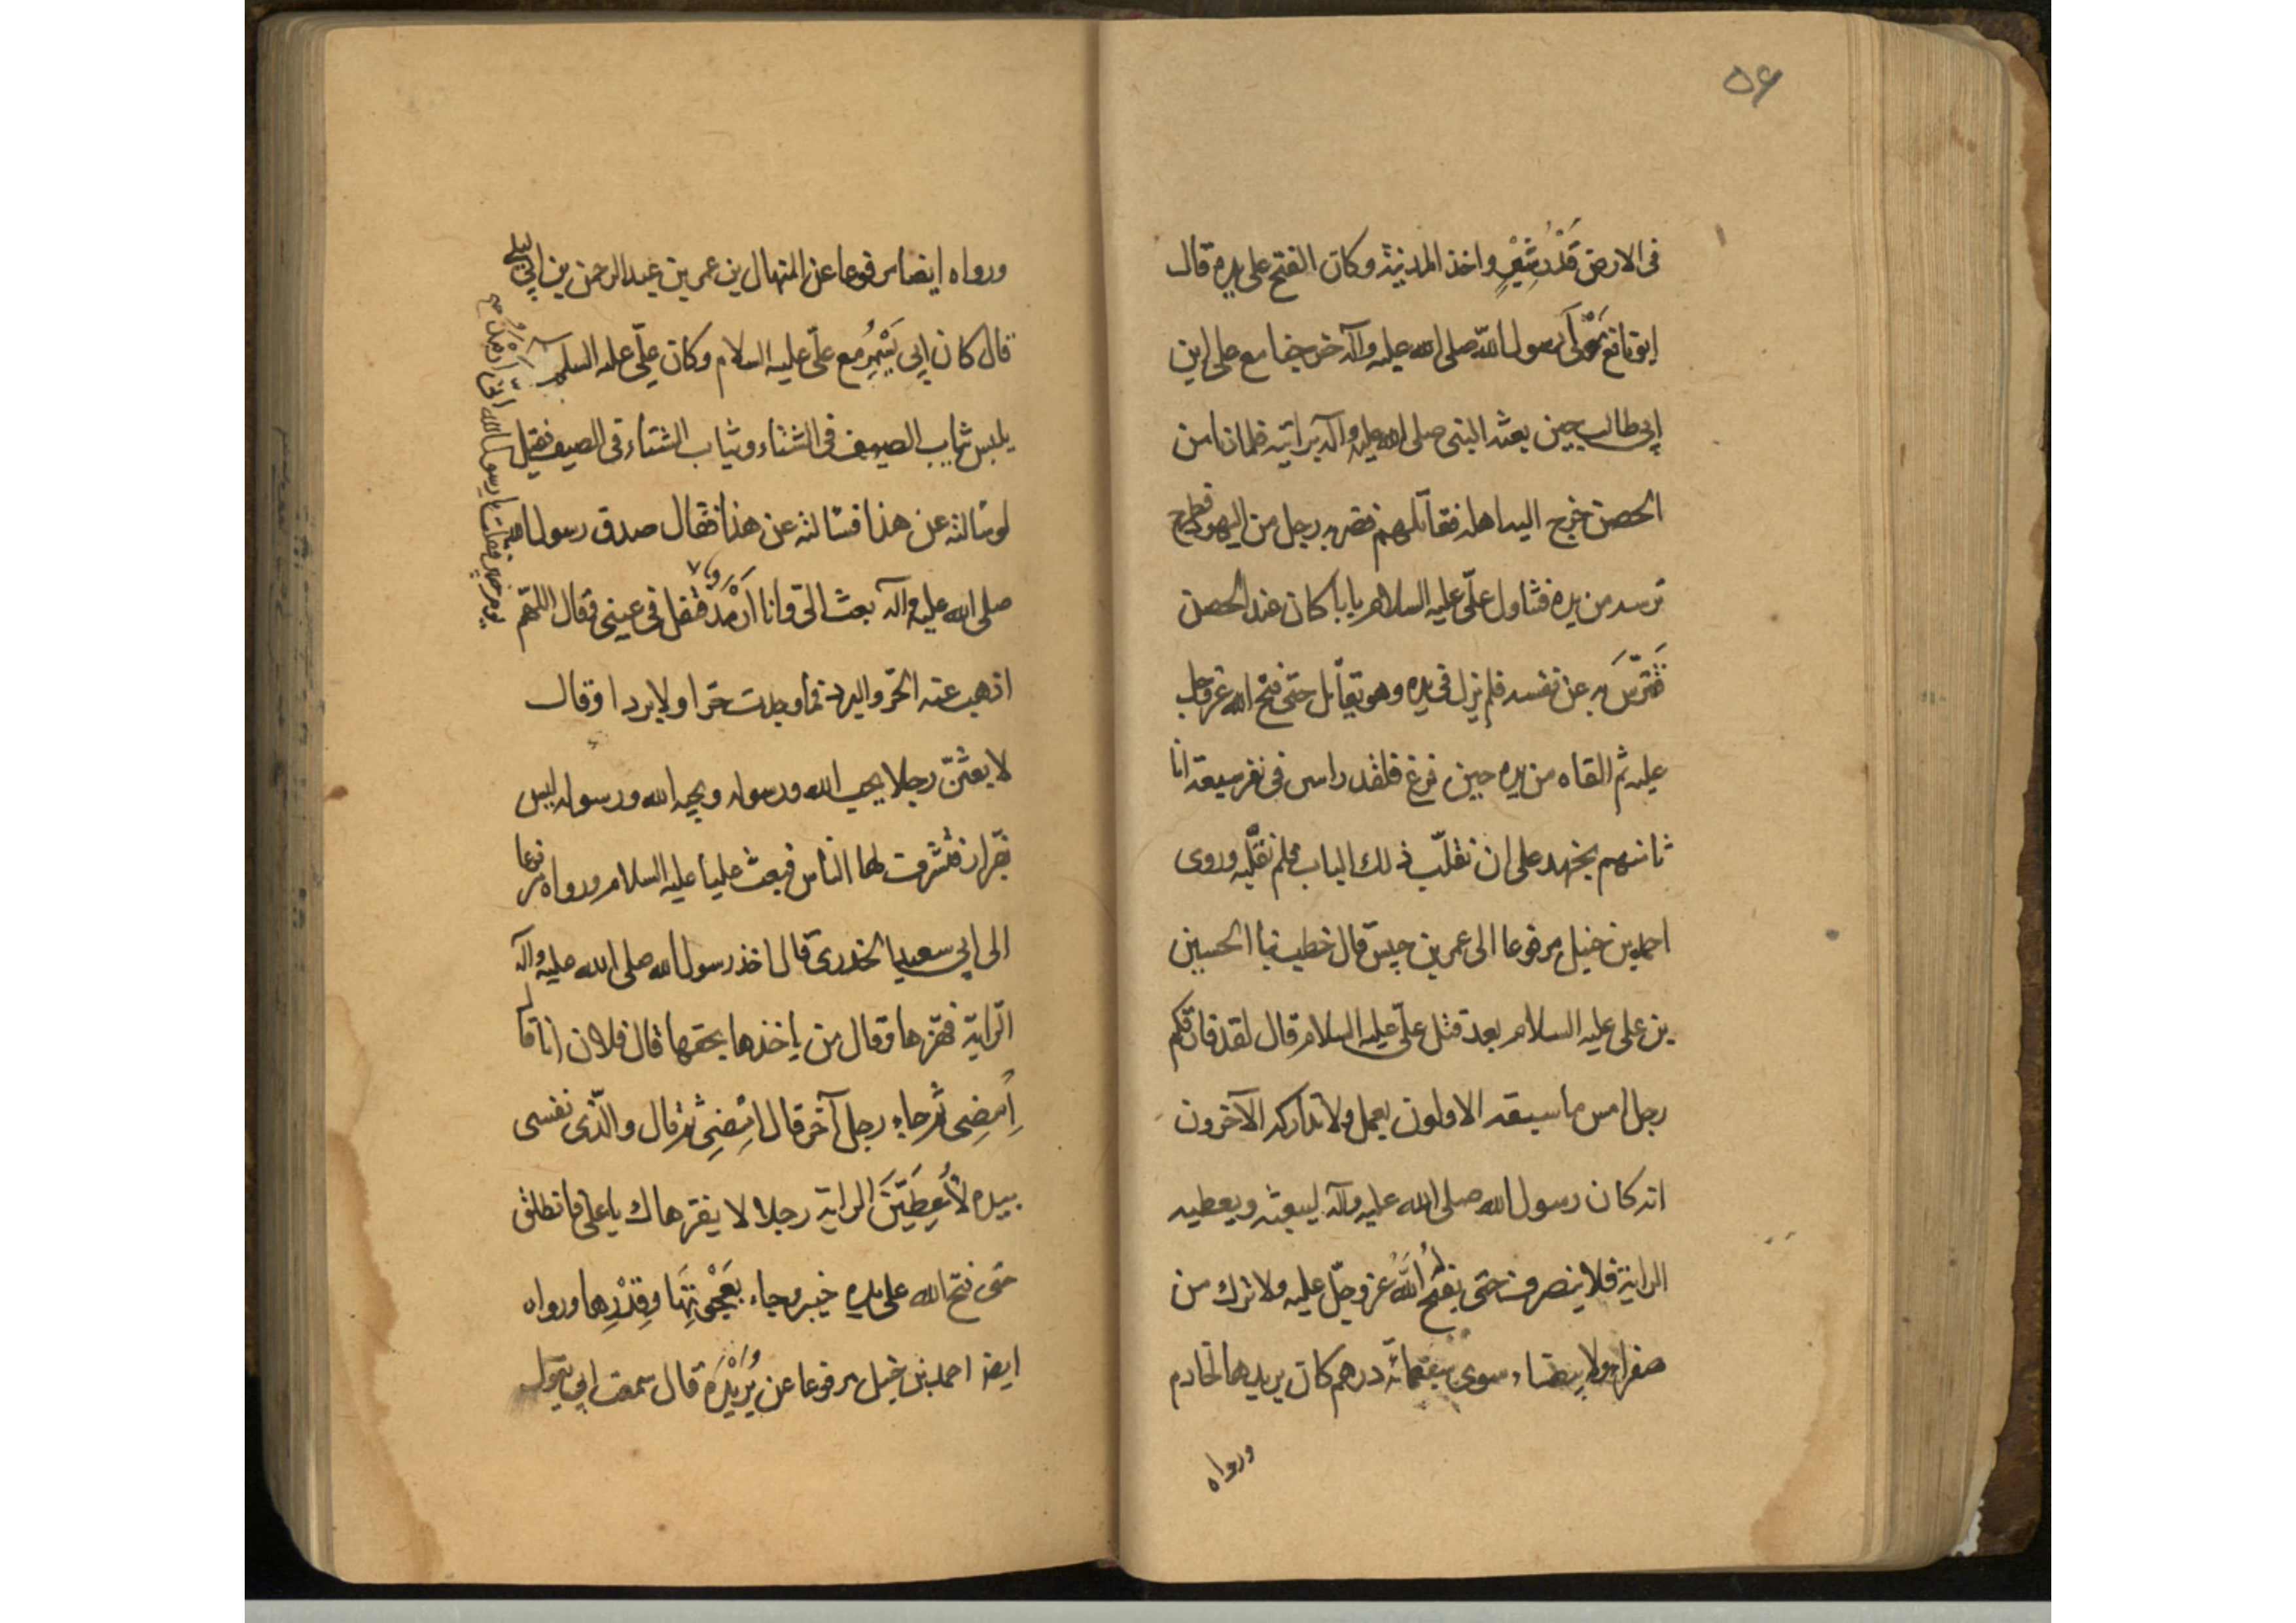 ۵۶
فى الارض قَدْرُ شِبْرٍ واخذ المدينة وكان الفتح على يده قال
ابو نافع مَوْلَى رسول الله صلى الله عليه وآله خرجنا مع على ابن
ابى طالب حين بعثه النبى صلى الله عليه وآله برايته فلما دنا من
الحصن خرج اليه اهله فقاتلهم فضربه رجل من اليهود فطرح
ترسه من يده فتناول علىّ عليه السلام بابا كان عند الحصن
فَتَرَّسَ به عن نفسه فلم يزل فى يده وهو يقاتل حتى فتح الله عز وجل
عليه ثم القاه من يده حين فرغ فلقد راسى فى نفر سبعة انا
ثامنهم نجهد على ان نقلّب ذلك الباب فلم نقلّبه وروى
احمد بن حنبل مرفوعا الى عمر بن حبيش قال خطب بنا الحسين
بن على عليه السلام بعد قتل علىّ عليه السلام قال لقد فارقكم
رجل امس ما سبقه الاولون بعمل ولا تداركه الآخرون
انه كان رسول الله صلى الله عليه وآله ليبعثه ويعطيه
الراية فلا ينصرف حتى يفتحُ اللهُ عز وجلّ عليه ولا ترك من
صفراء ولا بيضاء سوى سبعمائة درهم كان يريدها لخادم
ورواه
ورواه ايضا مرفوعا عن المنهال بن عمر بن عبد الرحمن بن ابى ليلى
قال كان ابى يَسْمِرُ مع علىّ عليه السلام وكان علىّ عليه السلم
يلبس ثياب الصيف فى الشتاء وثياب الشتاء فى الصيف فقيل
لو سالته عن هذا فسالته عن هذا فقال صدق رسول الله
صلى الله عليه وآله بعث الىّ وانا اَرْمَدُ فتفل فى عينى وقال اللهم
يوم خيبر فقلت يا رسول الله انّى اَرْمَدُ
اذهب عنه الحرّ والبرد فما وجدت حرّا ولا بردا وقال
لابعثنّ رجلا يحب الله ورسوله ويحبه الله ورسوله ليس
بفرّار فتشرفت لها الناس فبعث عليا عليه السلام ورواه مرفوعا
الى ابى سعيد الخدرى قال اخذ رسول الله صلى الله عليه وآله
الراية فهزها وقال من ياخذها بحقها قال فلان انا قال
اِمْضِى ثم جاء رجل آخر قال امْضِى ثم قال والّذى نفسى
بيده لَأُعْطِيَنَّ الراية رجلا لا يفر هاك يا على فانطلق
حتى فتح الله على يده خيبر وجاء بعَجْوَتِهَا وقِدْرِها ورواه
ايضا احمد بن حنبل مرفوعا عن بُرَيْدَة قال سمعت ابى يقول